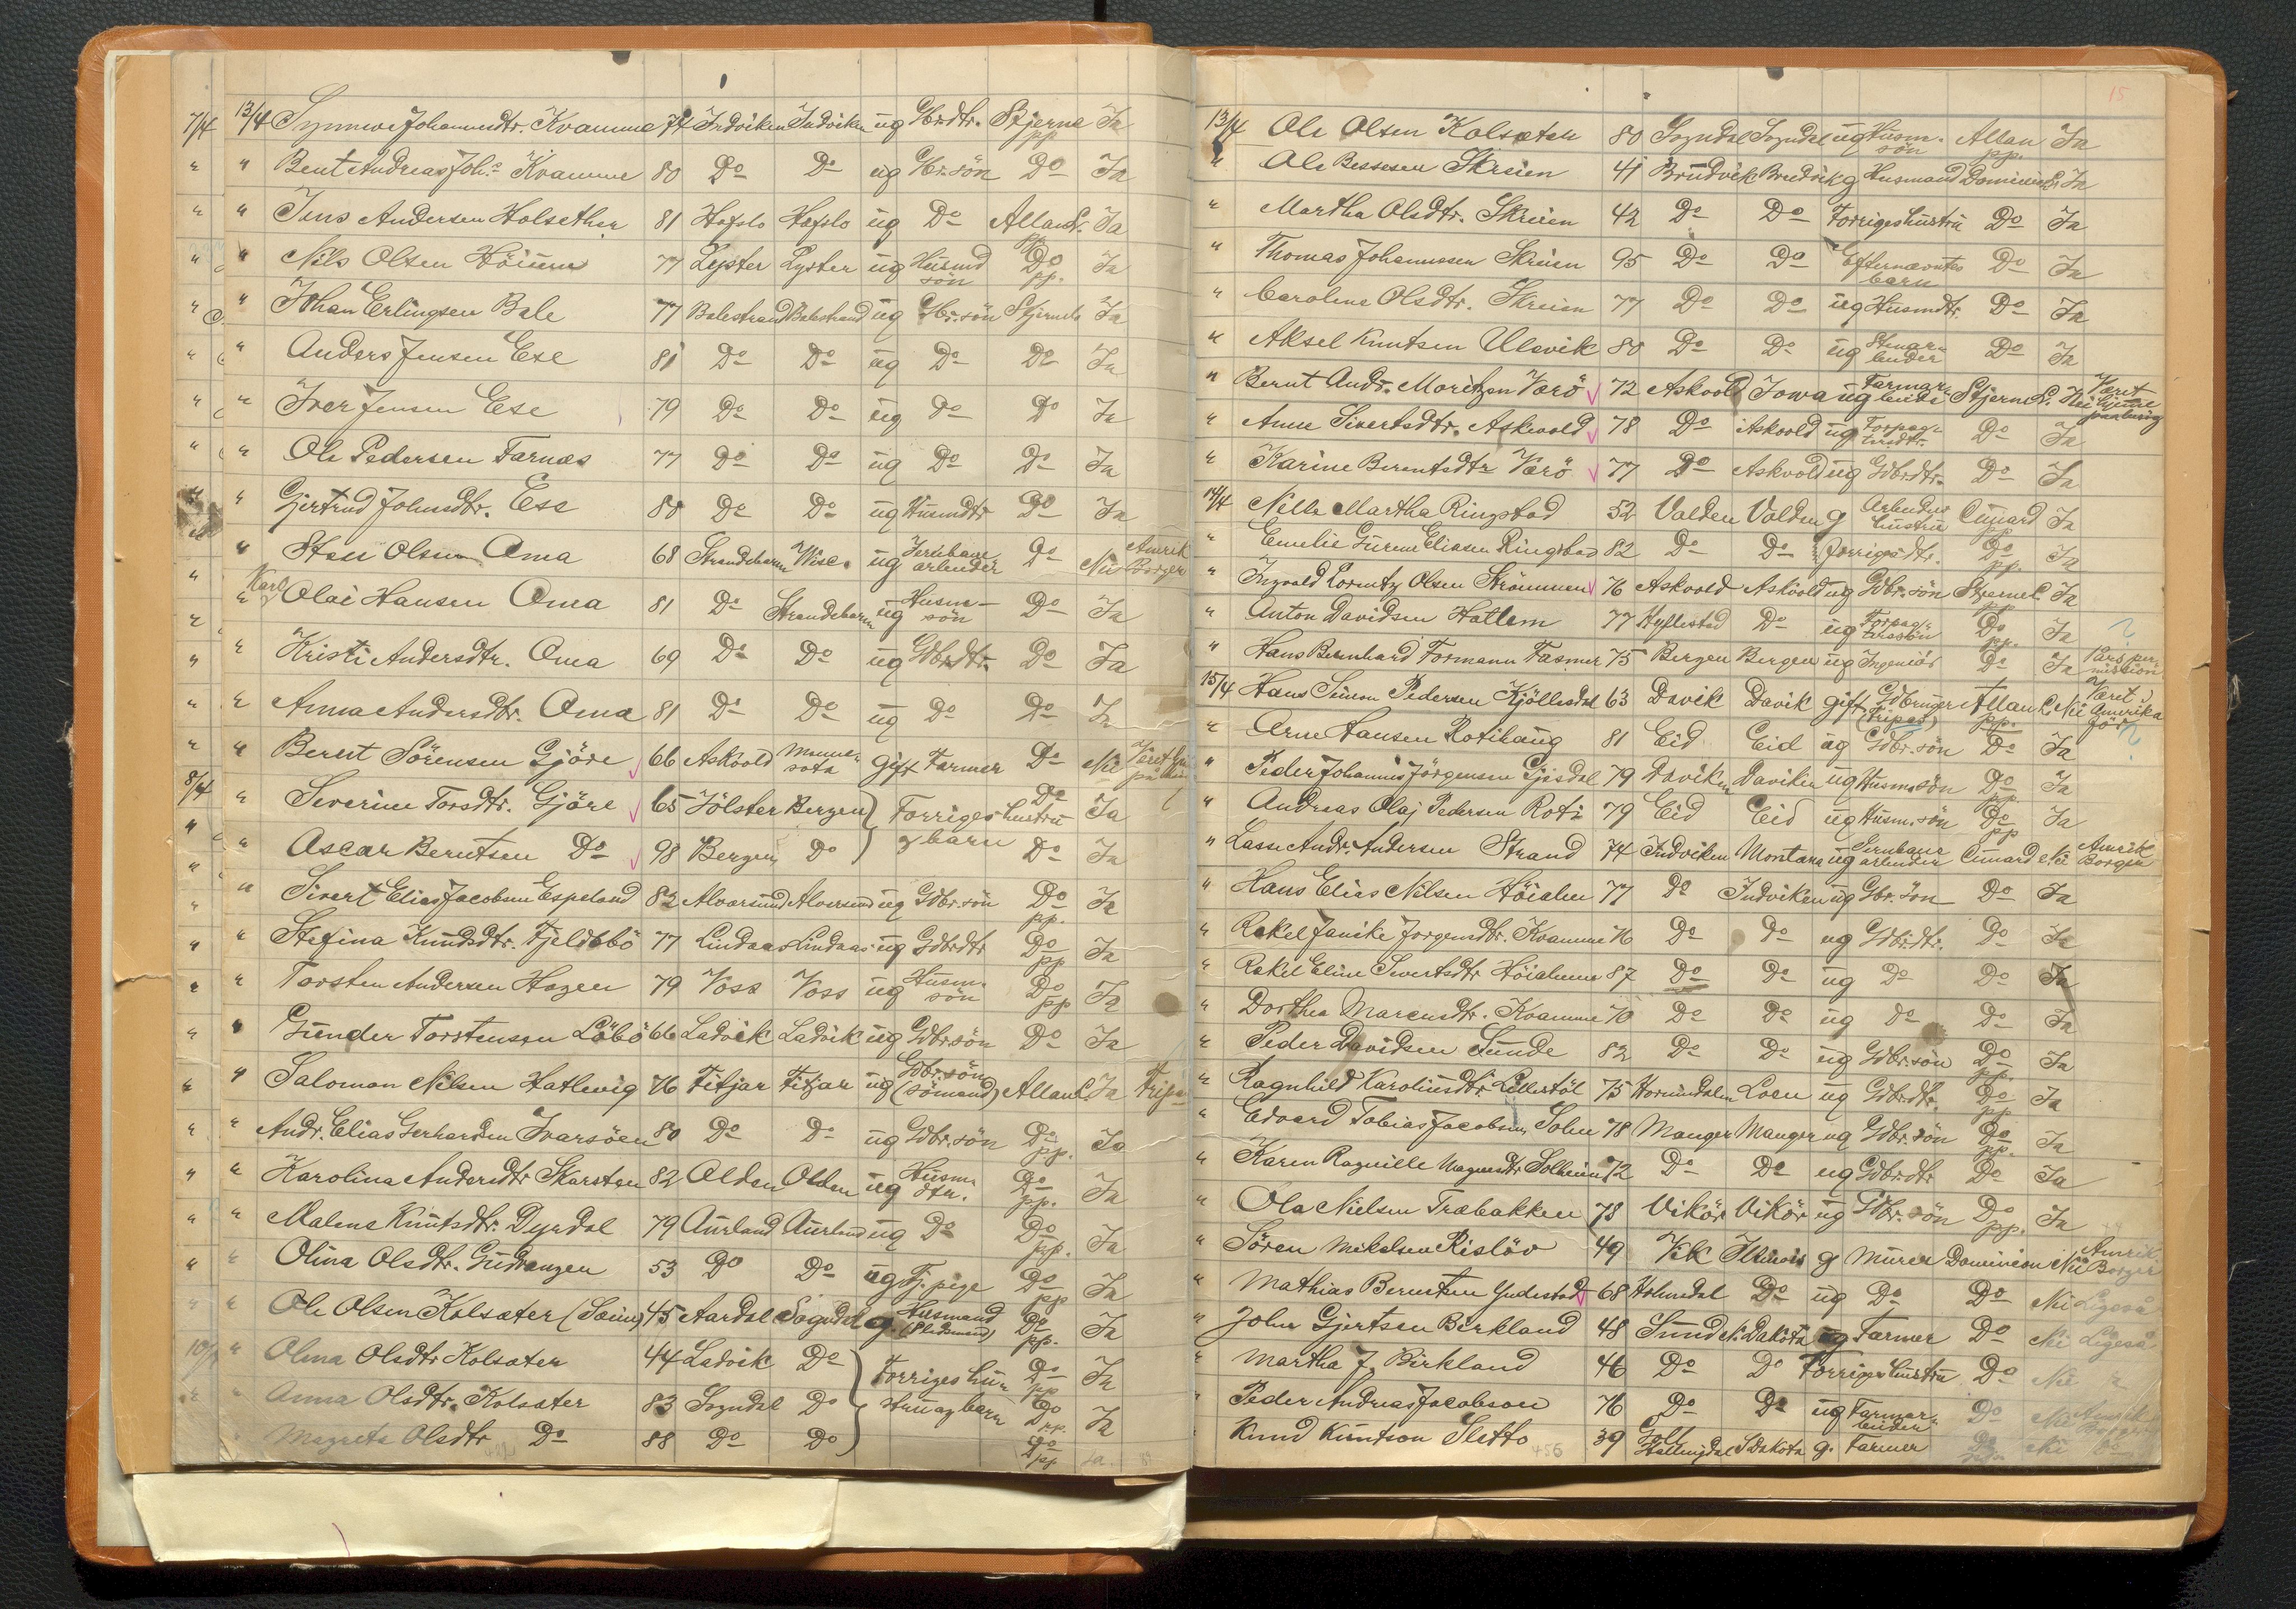 7/4 13/4 Synneve Johannesdtr. Kvamme 74 Indviken Indviken ug Gbr.dtr. Stjerne pp Ja
" " Bent Andreas Joh.s Kvamme 80 Do Do ug Gbr.sön Do Ja
" " Jens Andersen Holsether 81 Hafslo Hafslo ug Do Allan L. pp Ja
" " Nils Olsen Höium 77 Lyster Lyster ug Husmd sön Do pp. Ja
" " Johan Erlingsen Bale 77 Balestrand Balestrand ug Gbr.sön Stjernel. Ja
" " Anders Jensen Ese 81 Do Do ug Do Do Ja
" " Iver Jensen Ese 79 Do Do ug Do Do Ja
" " Ole Pedersen Farnæs 77 Do Do ug Do Do Ja
" " Gjertrud Johnsdtr. Ese 80 Do Do ug Husmdtr Do Ja
" " Olsen Oma 68 Strandebarm Wisc. ug Jernbane arbeider Do Nei Amrik Borger
" " Karl Olai Hansen Oma 81 Do Strandebarm ug Husm- sön Do Ja
" " Kristi Andersdtr. Oma 69 Do Do ug Gdbrdtr. Do Ja
" " Anna Andersdtr. Oma 81 Do Do ug Do Do Ja
" " Berut Sörensen Gjöre 66 Askvold Minne- sota gift Farmer Do Nei Været
8/4 " Severine Torsdtr. Gjöre 65 Jölster Bergen } Forriges hustru Do Ja
" " Ascar Berntsen Do 98 Bergen Do } og barn Do Ja
" " Sivert Elias Jacobsen Espeland 82 Alversund Alversund ug Gdbr.sön Do pp. Ja
" " Stefina Knudsdtr. Fjeldsbö 77 Lindaas Lindaas ug Gdbrdtr Do pp Ja
" " Torsten Andersen Hagen 79 Voss Voss ug Husm. sön Do pp Ja
" " Gunder Torstensen Löbö 66 Ladvik Ladvik ug Gdbrsön Do Ja
" " Saloman Nilsen Hatlevig 76 Fitjar Fitjar ug Gdbr.sön (sömand) Allan L. Ja Fripas
" " Andr. Elias Gerhardsen Ivarsöen 80 Do Do ug Gdbr.sön Do pp. Ja
" " Karolina Andersdtr Skarsten 82 Olden Olden ug Husm. dtr. Do pp. Ja
" " Malene Knutsdtr. Dyrdal 79 Aurland Aurland ug Do Do pp. Ja
" " Olina Olsdtr. Gudvangen 53 Do Do ug Tj. pige Do pp Ja
" " Ole Olsen Kolsæter 45 Aardal Sogndal g. Husmand Do pp. Ja
10/4 " Olina Olsdtr Kolsæter 44 Ladvik Do } Forriges hu- Do pp Ja
" " Anna Olsdtr. Kolsæter 83 Sogndal Do stru og barn Do pp. Ja
" Magrete Olsdtr Do 88 Do Do } Do pp Ja.
15
13/4 Ole Olsen Kolsæter 80 Sogndal Sogndal ug Husm. sön Allan pp. Ja
" Ole Bessesen Skreien 41 Brudvik Brudvik g Husmand Dominion L. Ja
" Martha Olsdtr. Skreien 42 Do Do Forriges hustru Do Ja
" Thomas Johannesen Skreien 95 Do Do Efternævntes barn Do Ja
" Caroline Olsdtr. Skreien 77 Do Do ug Husmdtr. Do Ja
" Aksel Knutsen Ulsvik 80 Do Do ug Stenar- beider Do Ja
" Bernt Andr. Moritzen Værö 72 Askvold Iowa ug Farmar- beider Stjernel. Nei Været hjemme paa besög
" Anne Sivertsdtr. Askvold 78 Do Askvold ug Forpag- tersdtr. Do Ja
" Karine Berentsdtr Værö 77 Do Askvold ug Gdbrdtr. Do Ja
14/4 Nelle Martha Ringstad 52 Volden Volden g Arbeider hustru Cunard pp Ja
" Emelie Gurine Eliasen Ringstad 82 Do Do Forriges dtr. Do pp. Ja
" Ingvald Lorentz Olsen Strömmen 76 Askvold Askvold ug Gdbr.sön Stjernel. pp Ja
" Anton Davidsen Hatlem 77 Hyllestad Do ug Forpag- tersön Do pp. Ja
" Hans Bernhard Formann Fasmer 75 Bergen Bergen ug Ingeniör Do Ja Kgs per- mission
15/4 Hans Simon Pedersen Kjöllesdal 63 Davik Davik gift Gdbruger (Fripas) Allan L. pp. Nei Været i Amerika för
" Arne Hansen Rotihaug 81 Eid Eid ug Gdbr.sön Do Ja
" Peder Johannes Jörgensen Gjesdal 79 Daviken Daviken ug Husm.sön Do pp. Ja
" Andreas Olaj Pedersen Roti 79 Eid Eid ug Husm.sön Do pp Ja
" Lasse Andr. Andersen Strand 74 Indviken Montana ug Jernbane arbeider Cunard Nei Amrik Borger
" Hans Elias Nilsen Höialm 77 Do Indviken ug Gbr.sön Do Ja
" Rakel Janike Jorgensdtr. Kvamme 76 Do Do ug Gdbr.dtr. Do Ja
" Rakel Eline Sivertsdtr Höialmen 87 Do Do ug Do Do Ja
" Dorthea Marcusdtr. Kvamme 70 Do Do ug Do Do Ja
" Peder Davidsen Sunde 82 Do Do ug Gdbr.sön Do pp. Ja
" Ragnhild Karoliusdtr. Lillestöl 75 Hornindalen Loen ug Gdbrdtr. Do pp Ja
" Edvard Tobias Jacobsen Solem 78 Manger Manger ug Gdbr.sön Do pp. Ja
" Karen Ragnille Magnesdtr Solheim 72 Do Do ug Gdbrdtr Do Ja
" Ola Nielsen Træbakken 78 Vikör Vikör ug Gdbr.sön Do pp. Ja
" Sören Mikelsen Rislöv 49 Vik Illinois g Murer Dominion Nei Amrik Borger
" Mathias Berntsen Yndestad 68 Holmedal Do ug Do Do Nei Ligesaa
" John Gjertsen Birkland 48 Sund N. Dakota g Farmer Do Nei Ligesaa
" Martha J. Birkland 46 Do Do Forriges hustru Do Nei "
" Peder Andreas Jacobson 76 Do Do ug Farmar- beider Do Nei Amrik Borger
" Knud Knutson Sletto 39 Goll Hallingdal S Dakota g. Farmer Do Nei Do
456